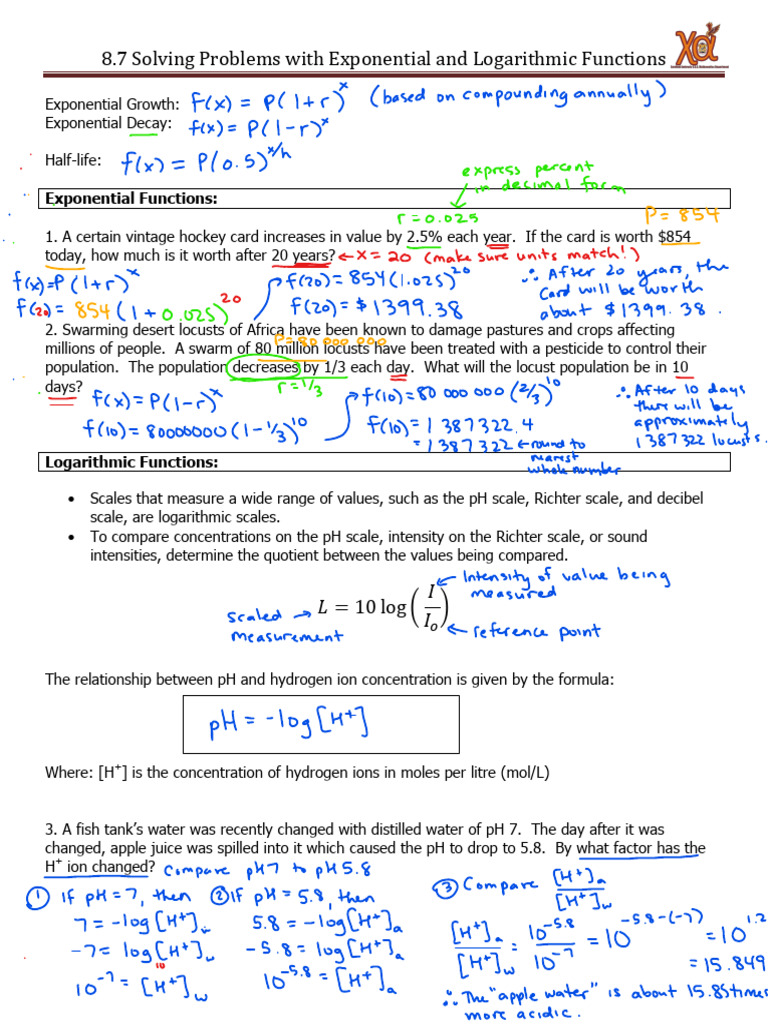 8.7 Solving Problems with Exponential and Logarithmic Functions
Exponential Growth: f(x) = P(1+r)^x (based on compounding annually)
Exponential Decay: f(x) = P(1-r)^x
Half-life: f(x) = P(0.5)^x/h
express percent
in decimal form
Exponential Functions:
r = 0.025
P = 854
1. A certain vintage hockey card increases in value by 2.5% each year. If the card is worth $854
today, how much is it worth after 20 years? ← x = 20 (make sure units match!)
f(x) = P(1+r)^x
f(20) = 854(1+0.025)^20
f(20) = 854(1.025)^20
f(20) = $1399.38
∴ After 20 years, the
card will be worth
about $1399.38.
2. Swarming desert locusts of Africa have been known to damage pastures and crops affecting
P=80 000 000
millions of people. A swarm of 80 million locusts have been treated with a pesticide to control their
population. The population decreases by 1/3 each day. What will the locust population be in 10
days?
r = 1/3
f(x) = P(1-r)^x
f(10) = 80000000(1-1/3)^10
f(10) = 80 000 000(2/3)^10
f(10) = 1 387 322.4
= 1 387 322 ← round to
nearest
whole number
∴ After 10 days
there will be
approximately
1 387 322 locusts.
Logarithmic Functions:
• Scales that measure a wide range of values, such as the pH scale, Richter scale, and decibel
scale, are logarithmic scales.
• To compare concentrations on the pH scale, intensity on the Richter scale, or sound
intensities, determine the quotient between the values being compared.
← Intensity of value being
measured
scaled →
measurement
L = 10 log(I/I₀)
← reference point
The relationship between pH and hydrogen ion concentration is given by the formula:
pH = -log[H⁺]
Where: [H⁺] is the concentration of hydrogen ions in moles per litre (mol/L)
3. A fish tank's water was recently changed with distilled water of pH 7. The day after it was
changed, apple juice was spilled into it which caused the pH to drop to 5.8. By what factor has the
H⁺ ion changed? Compare pH7 to pH5.8
① If pH = 7, then
7 = -log[H⁺]w
-7 = log[H⁺]w
10
10^-7 = [H⁺]w
② If pH = 5.8, then
5.8 = -log[H⁺]a
-5.8 = log[H⁺]a
10^-5.8 = [H⁺]a
③ Compare [H⁺]a/[H⁺]w
[H⁺]a/[H⁺]w = 10^-5.8/10^-7 = 10^-5.8-(-7) = 10^1.2
= 15.849
∴ The "apple water" is about 15.85 times
more acidic.